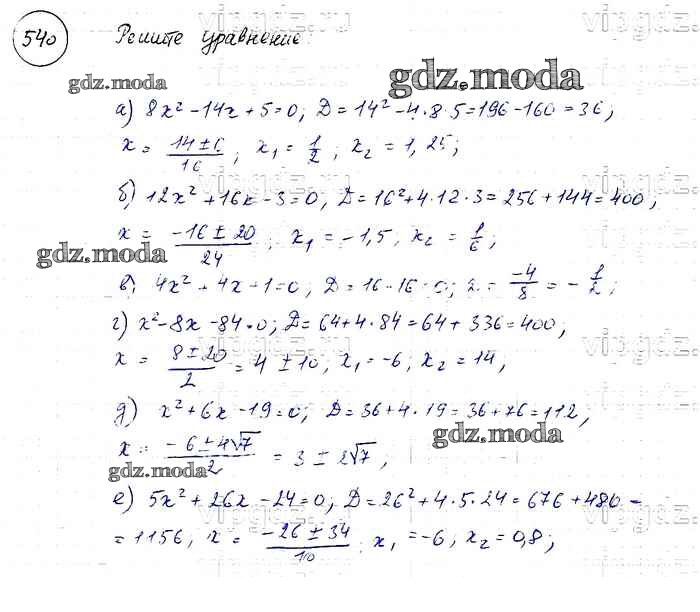 540 Решите уравнение.
gdz.moda
gdz.moda
а) 8x² - 14x + 5 = 0; D = 14² - 4·8·5 = 196 - 160 = 36;
x = (14 ± 6)/16; x₁ = 1/2; x₂ = 1,25;
б) 12x² + 16x - 3 = 0; D = 16² + 4·12·3 = 256 + 144 = 400;
x = (-16 ± 20)/24; x₁ = -1,5, x₂ = 1/6;
gdz.moda
в) 4x² + 4x + 1 = 0; D = 16 - 16 = 0; x = -4/8 = -1/2;
г) x² - 8x - 84 = 0; D = 64 + 4·84 = 64 + 336 = 400,
x = (8 ± 20)/2 = 4 ± 10, x₁ = -6; x₂ = 14,
д) x² + 6x - 19 = 0; D = 36 + 4·19 = 36 + 76 = 112,
gdz.moda
x = (-6 ± 4√7)/2 = 3 ± 2√7,
gdz.moda
е) 5x² + 26x - 24 = 0, D = 26² + 4·5·24 = 676 + 480 =
= 1156, x = (-26 ± 34)/10; x₁ = -6, x₂ = 0,8;
vipgdz.ru
vipgdz.ru
vipgdz.ru
vipgdz.ru